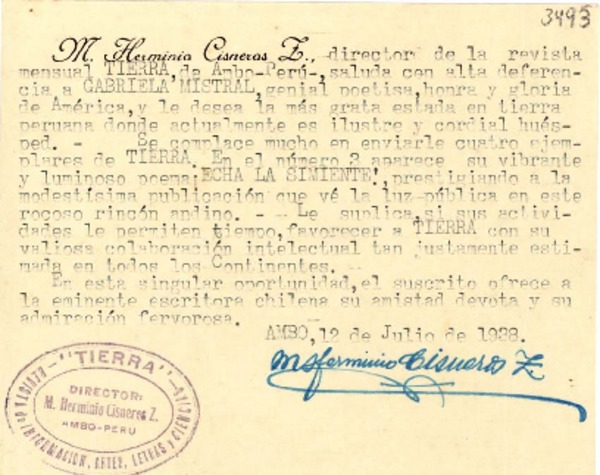 3493
M. Herminio Cisneros Z., director de la revista
mensual TIERRA, de Ambo-Perú-, saluda con alta deferen-
cia a GABRIELA MISTRAL, genial poetisa, honra y gloria
de América, y le desea la más grata estada en tierra
peruana donde actualmente es ilustre y cordial hués-
ped. - Se complace mucho en enviarle cuatro ejem-
plares de TIERRA. En el número 3 aparece su vibrante
y luminoso poema ¡ECHA LA SIMIENTE!, prestigiando a la
modestísima publicación que vé la luz pública en este
rocoso rincón andino. - - Le suplica, si sus activi-
dades le permiten tiempo, favorecer a TIERRA con su
valiosa colaboración intelectual tan justamente esti-
mada en todos los Continentes.
En esta singular oportunidad, el suscrito ofrece a
la eminente escritora chilena su amistad devota y su
admiración fervorosa.
AMBO, 12 de Julio de 1938.
M. Herminio Cisneros Z.
"TIERRA"
DIRECTOR:
M. Herminio Cisneros Z.
AMBO-PERU
REVISTA DE INFORMACION, ARTES, LETRAS y CIENCIAS